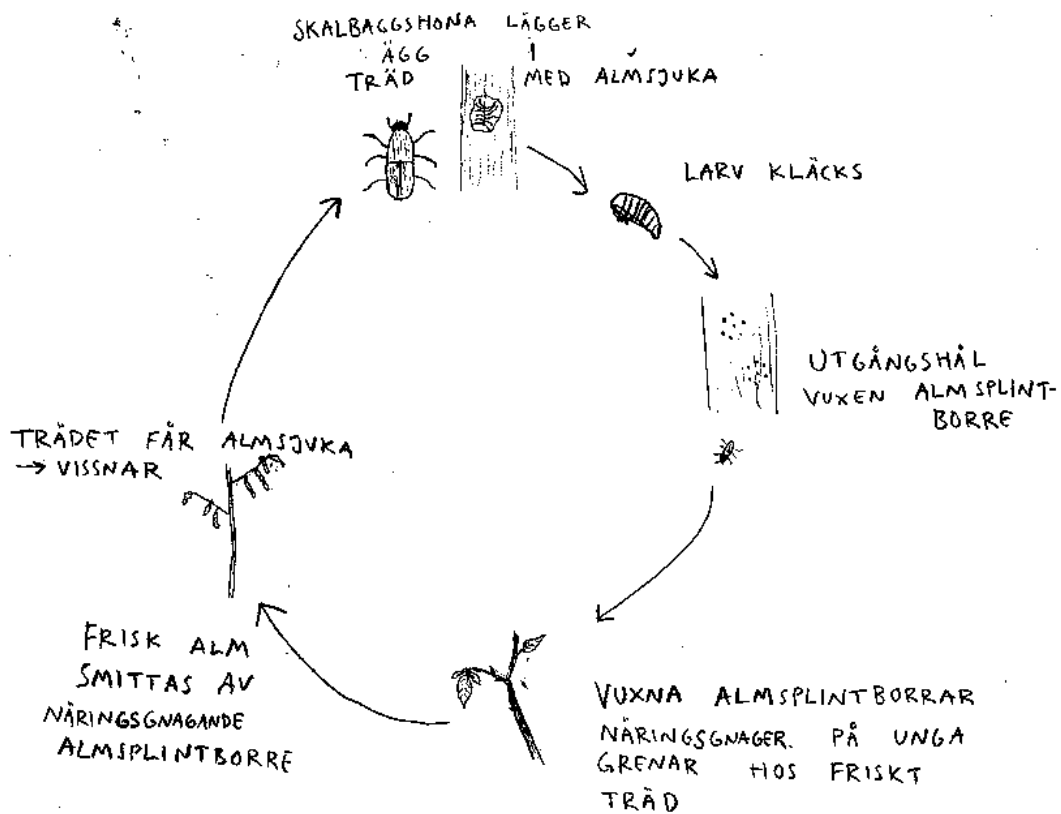 SKALBAGGSHONA LÄGGER
ÄGG I
TRÄD MED ALMSJUKA
LARV KLÄCKS
UTGÅNGSHÅL
VUXEN ALMSPLINT-
BORRE
VUXNA ALMSPLINTBORRAR
NÄRINGSGNAGER. PÅ UNGA
GRENAR HOS FRISKT
TRÄD
FRISK ALM
SMITTAS AV
NÄRINGSGNAGANDE
ALMSPLINTBORRE
TRÄDET FÅR ALMSJUKA
→ VISSNAR